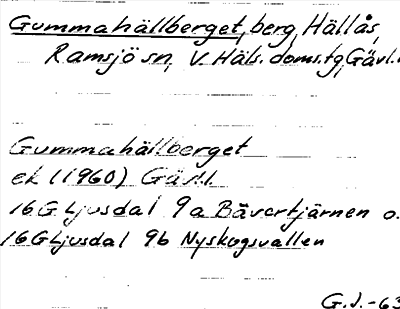 Gummahällberget, berg, Hällås,
Ramsjö sn, V. Häls. doms.tg, Gävl.
Gummahällberget
ek (1960) Gävl.l.
16G Ljusdal 9a Bävertjärnen o.
16G Ljusdal 9b Nyskogsvallen
G.J.-63